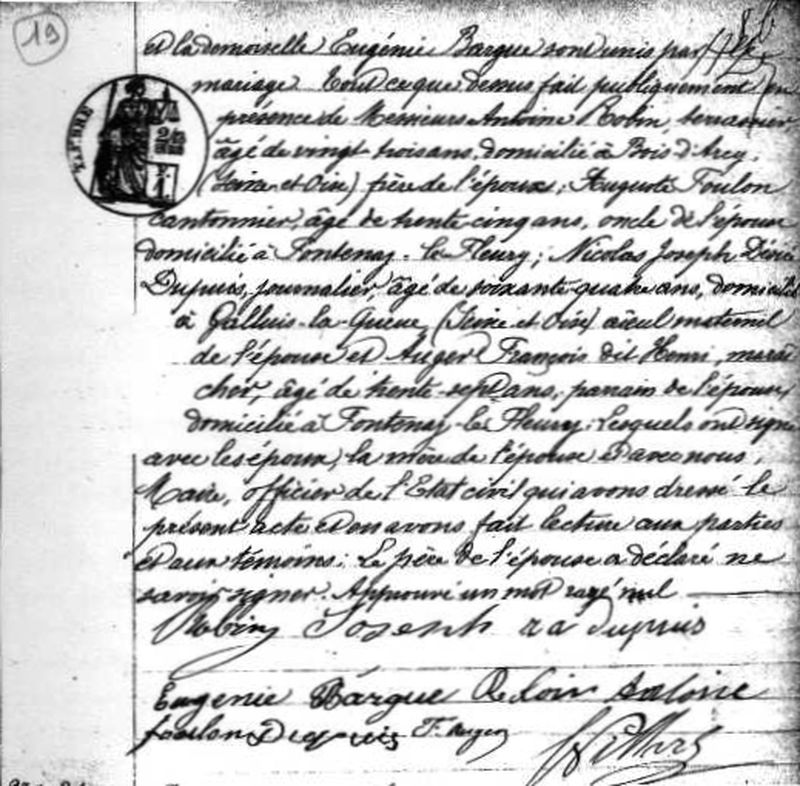 19
et la demoiselle Eugénie Bargue sont unis par le
mariage Tout ce que dessus fait publiquement en
présence de Messieurs Antoine Robin, terrassier
TIMBRE
âgé de vingt trois ans, domicilié à Bois d'Arcy,
(Seine et Oise) frère de l'époux; Auguste Foulon
cantonnier, âgé de trente cinq ans, oncle de l'épouse
domicilié à Fontenay-le-Fleury; Nicolas Joseph Désiré
Dupuis, journalier, âgé de soixante quatre ans, domicilié
à Galluis-la-Queue, (Seine et Oise) aïeul maternel
de l'épouse et Auger François dit Henri, maraî
cher, âgé de trente-sept ans, parrain de l'épouse,
domicilié à Fontenay-le-Fleury; Lesquels ont signé
avec les époux, la mère de l'épouse et avec nous,
Maire, officier de l'Etat civil qui avons dressé le
présent acte et en avons fait lecture aux parties
et aux témoins: Le père de l'épouse a déclaré ne
savoir signer. Approuvé un mot rayé nul
Robin Joseph Dupuis
Eugenie Bargue
foulon Dupuis F. Auger